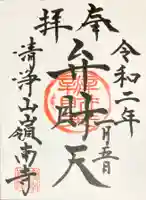 奉拝
令和二年
二月五日
弁財天
清浄山嶺南寺